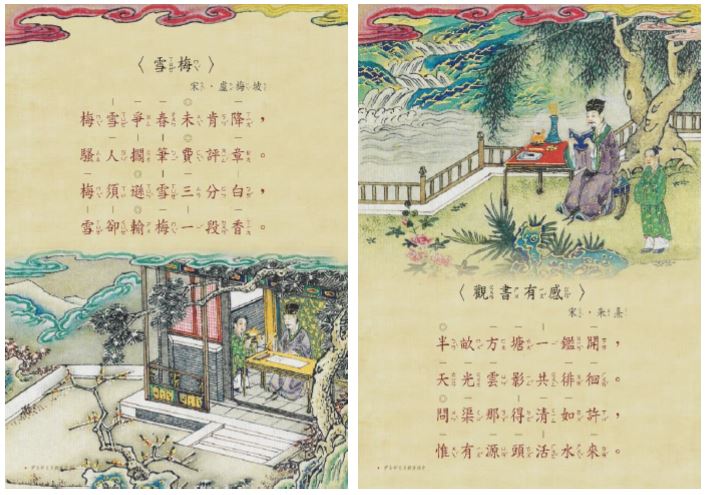 〈雪梅〉
宋．盧梅坡
梅雪爭春未肯降，
騷人擱筆費評章。
梅須遜雪三分白，
雪卻輸梅一段香。
〈觀書有感〉
宋．朱熹
半畝方塘一鑑開，
天光雲影共徘徊。
問渠那得清如許，
惟有源頭活水來。